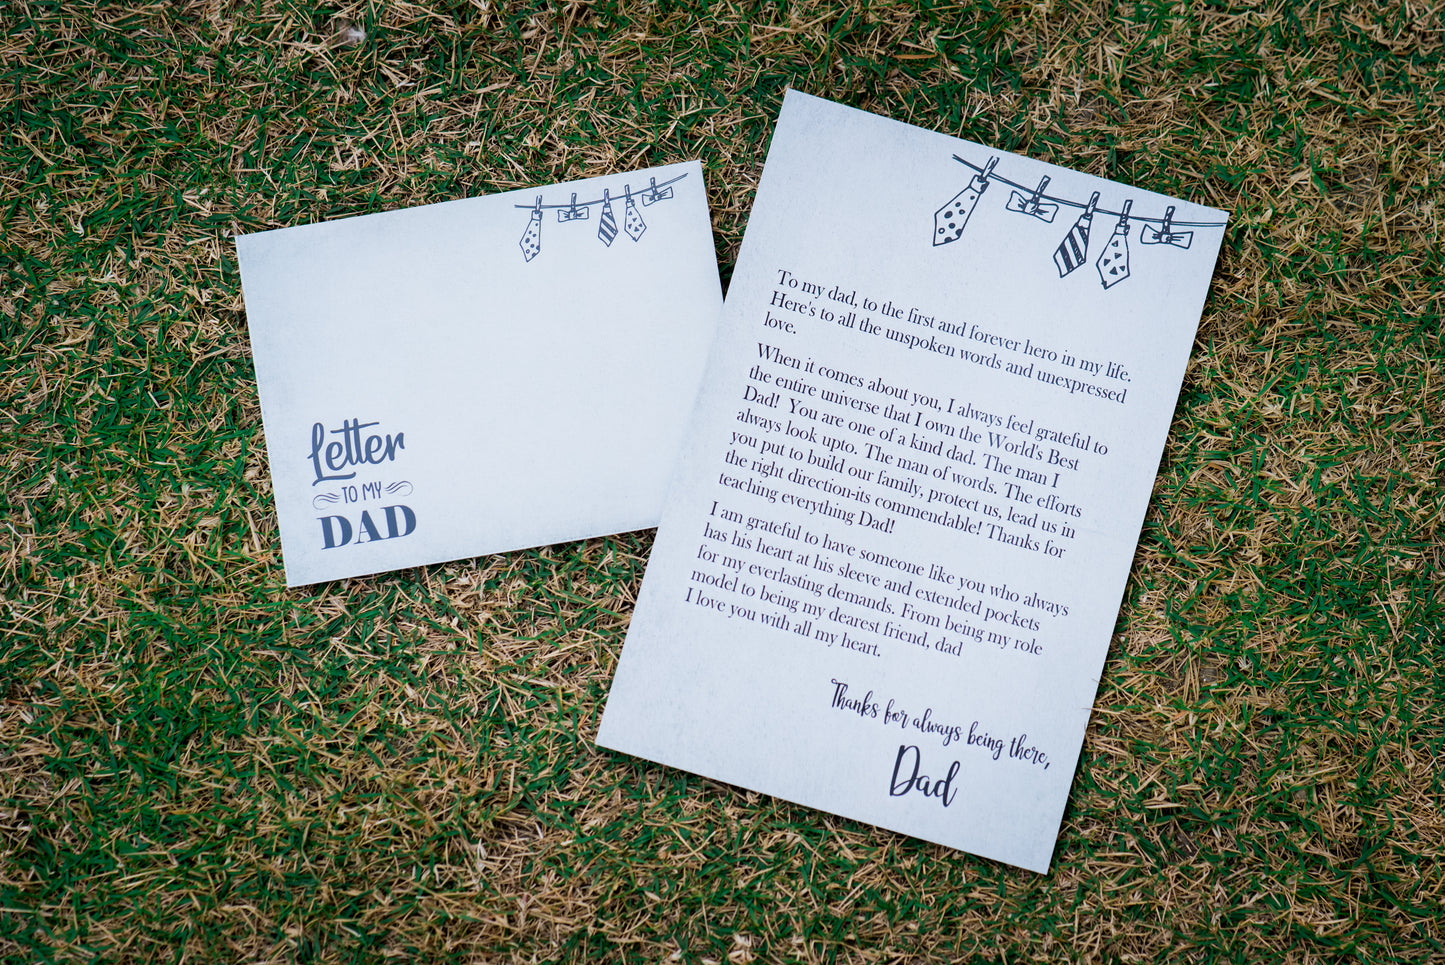 Letter
TO MY
DAD
To my dad, to the first and forever hero in my life.
Here's to all the unspoken words and unexpressed
love.
When it comes about you, I always feel grateful to
the entire universe that I own the World's Best
Dad! You are one of a kind dad. The man I
always look upto. The man of words. The efforts
you put to build our family, protect us, lead us in
the right direction-its commendable! Thanks for
teaching everything Dad!
I am grateful to have someone like you who always
has his heart at his sleeve and extended pockets
for my everlasting demands. From being my role
model to being my dearest friend, dad
I love you with all my heart.
Thanks for always being there,
Dad